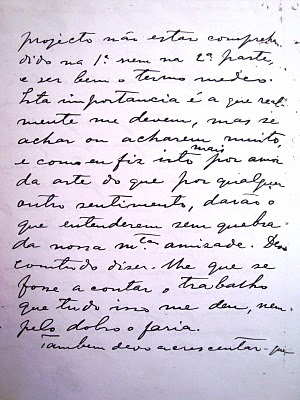 projecto não estar comprehen
dido na 1ª nem na 2ª parte,
e ser bem o termo medeo.
Esta importancia é a que real
mente me devem, mas se
achar ou acharem muito,
e como eu fiz isto mais por amor
da arte do que por qualquer
outro sentimento, darão o
que entenderem sem quebra
da nossa mᵗᵃ amisade. Devo
comtudo dizer-lhe que se
fosse a contar o trabalho
que tudo isso me deu, nem
pelo dobro o faria.
Tambem devo acrescentar-